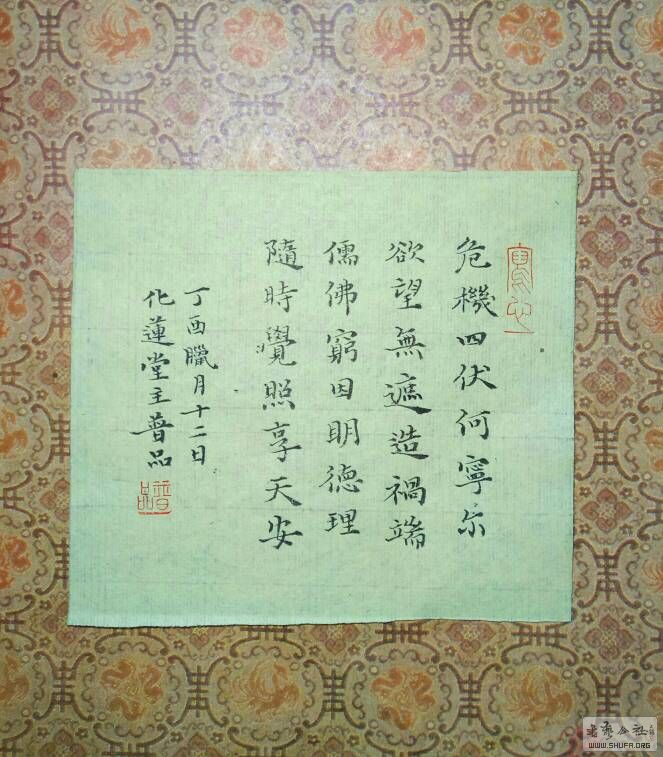 危機四伏何寧尔
欲望無遮造禍端
儒佛窮因明德理
隨時覺照享天安
丁酉臘月十二日
化蓮堂主普品
普品
WWW.SHUFA.ORG